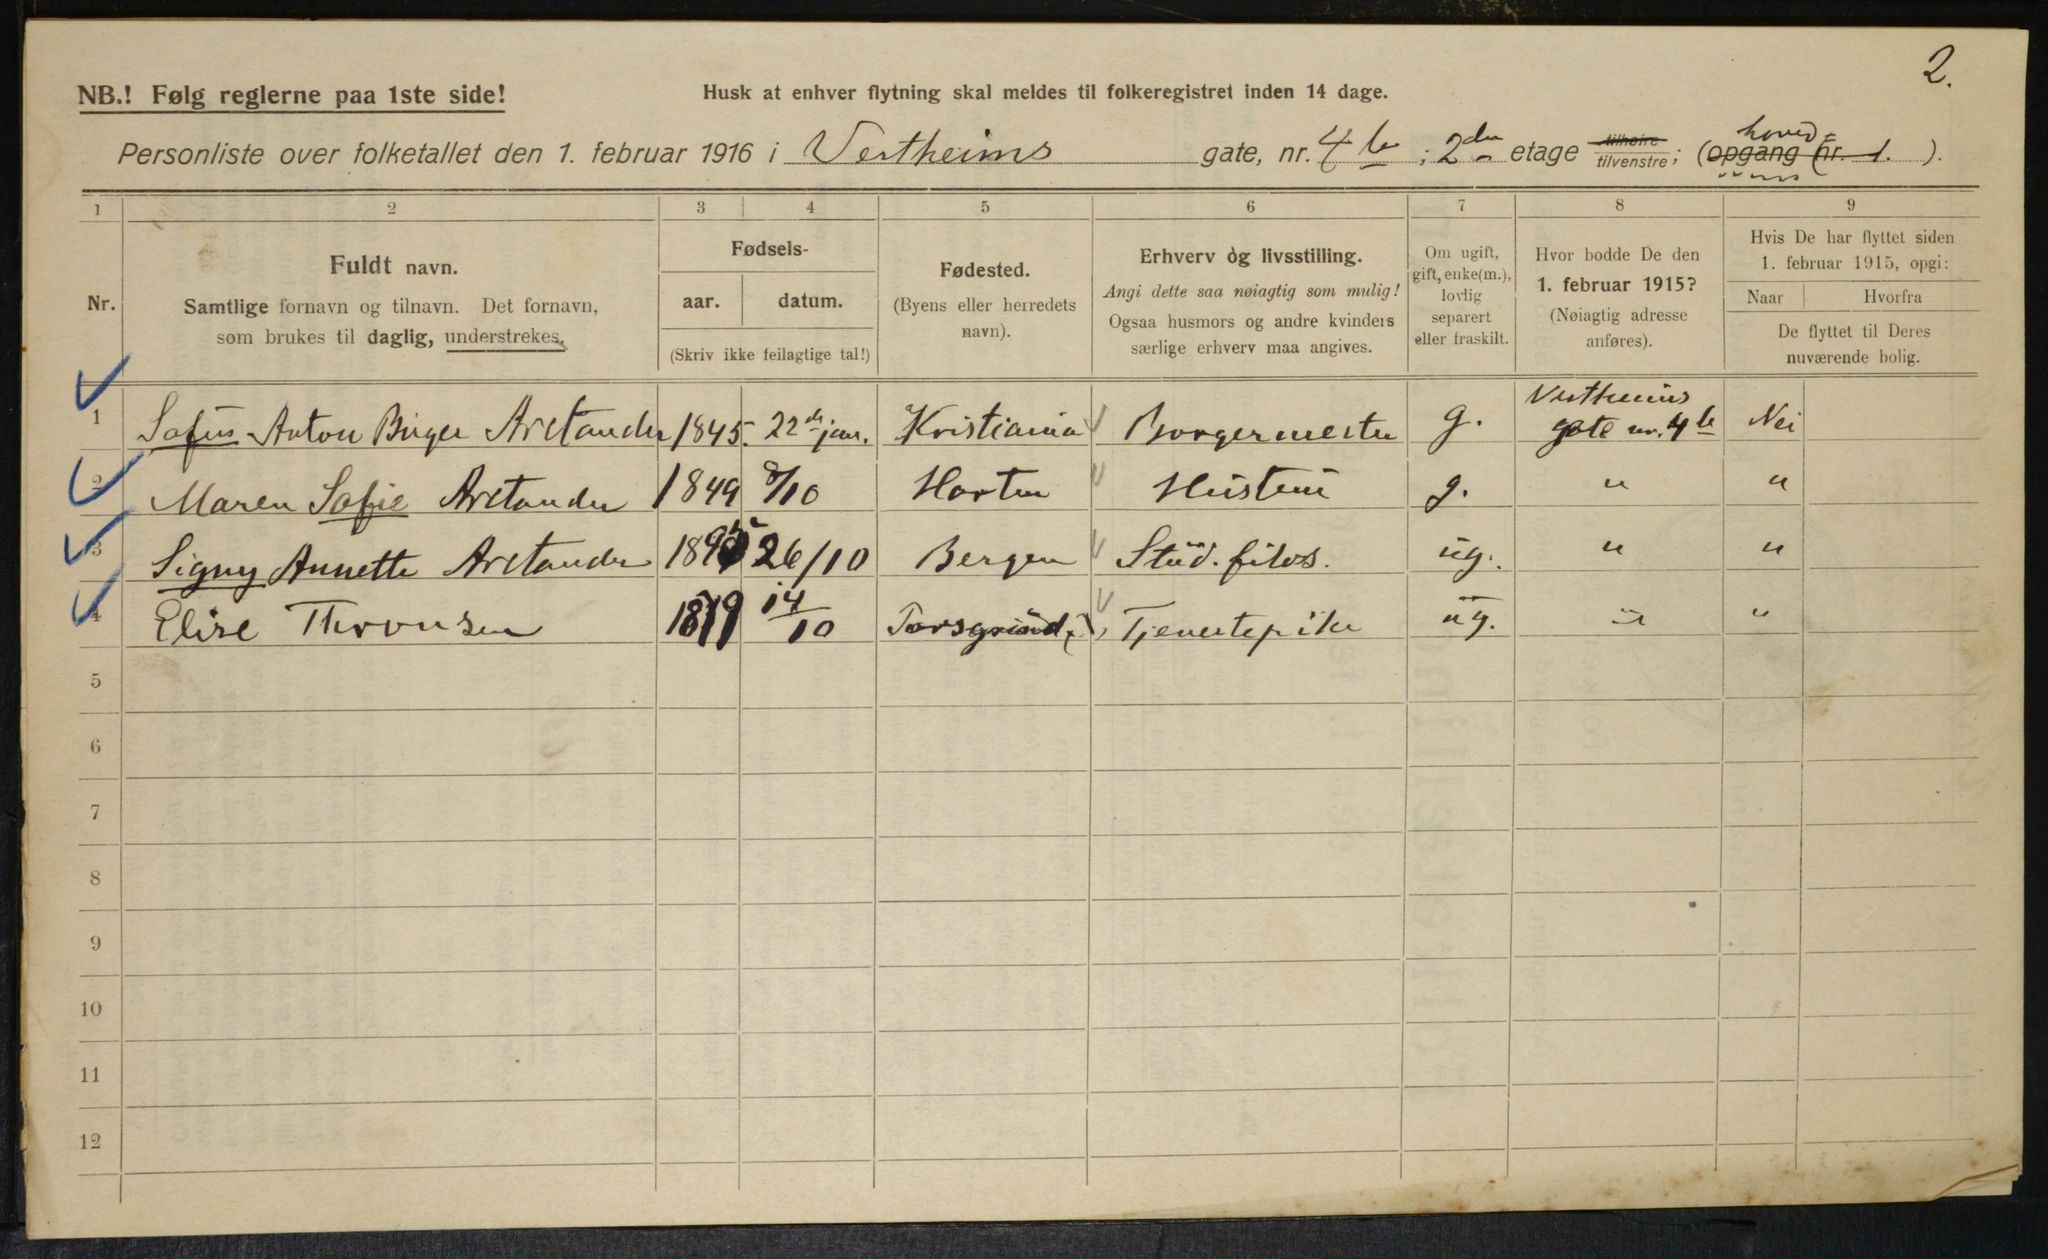 2.
NB.! Følg reglerne paa 1ste side!
Husk at enhver flytning skal meldes til folkeregistret inden 14 dage.
Personliste over folketallet den 1. februar 1916 i Vestheims gate, nr. 4 b; 2den etage tilhøire tilvenstre; (opgang nr. 1.). hoved
1 2 3 4 5 6 7 8 9
Nr.
Fuldt navn.
Samtlige fornavn og tilnavn. Det fornavn,
som brukes til daglig, understrekes.
Fødsels-
aar. datum.
(Skriv ikke feilagtige tal!)
Fødested.
(Byens eller herredets
navn).
Erhverv og livsstilling.
Angi dette saa nøiagtig som mulig!
Ogsaa husmors og andre kvinders
særlige erhverv maa angives.
Om ugift,
gift, enke(m.),
lovlig
separert
eller fraskilt.
Hvor bodde De den
1. februar 1915?
(Nøiagtig adresse
anføres).
Hvis De har flyttet siden
1. februar 1915, opgi:
Naar Hvorfra
De flyttet til Deres
nuværende bolig.
1 Sofus Anton Birger Arctander 1845. 22de jan. Kristiania Borgermester g. Vestheims gate nr. 4 b Nei
2 Maren Sofie Arctander 1849 8/10 Horten Hustru g. " "
3 Signy Annette Arctander 1895 26/10 Bergen Stud. filos. ug. " "
4 Elise Thronsen 1879 14/10 Porsgrund, Tjenestepike ug. " "
5
6
7
8
9
10
11
12